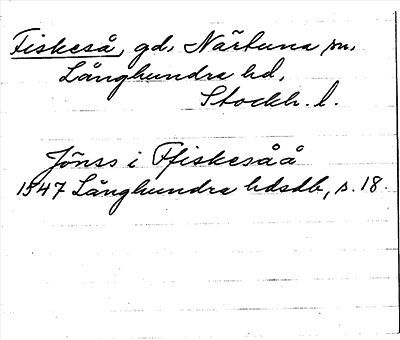 Fiskeså, gd, Närtuna sn,
Långhundra hd,
Stockh. l.
Jönss i Ffiskesåå
1547 Långhundra hdsdb, s. 18.